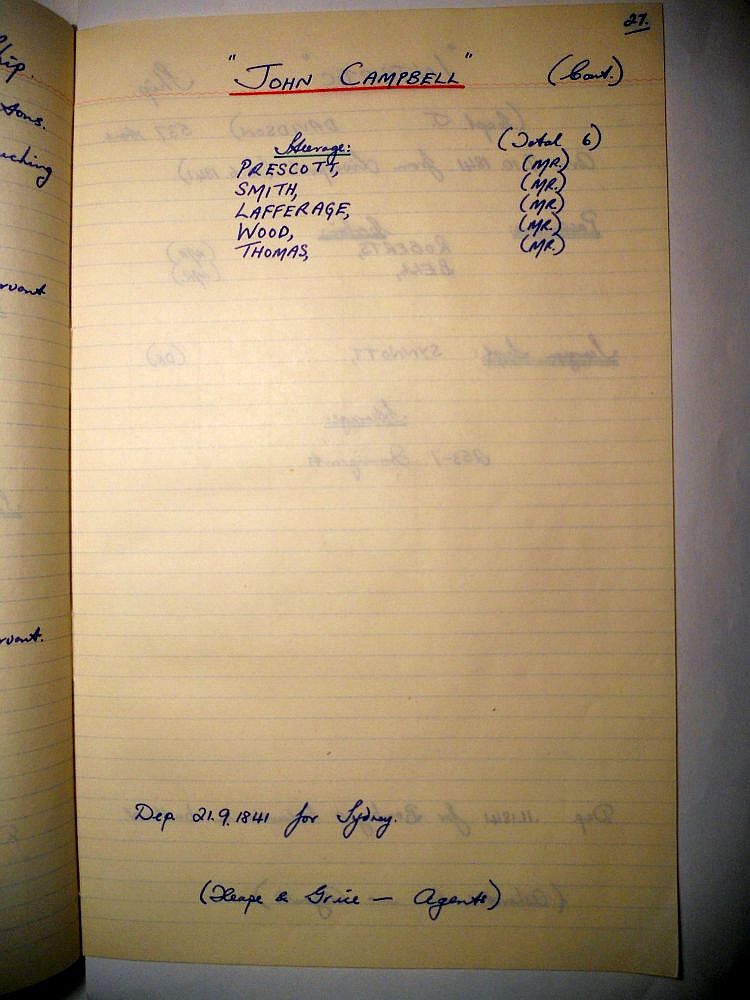 27.
"JOHN CAMPBELL" (Cont.)
Steerage: (Total 6)
PRESCOTT, (MR.)
SMITH, (MR.)
LAFFERAGE, (MR.)
WOOD, (MR.)
THOMAS, (MR.)
Dep. 21.9.1841 for Sydney.
(Heape & Grice — Agents)
ship.
sons.